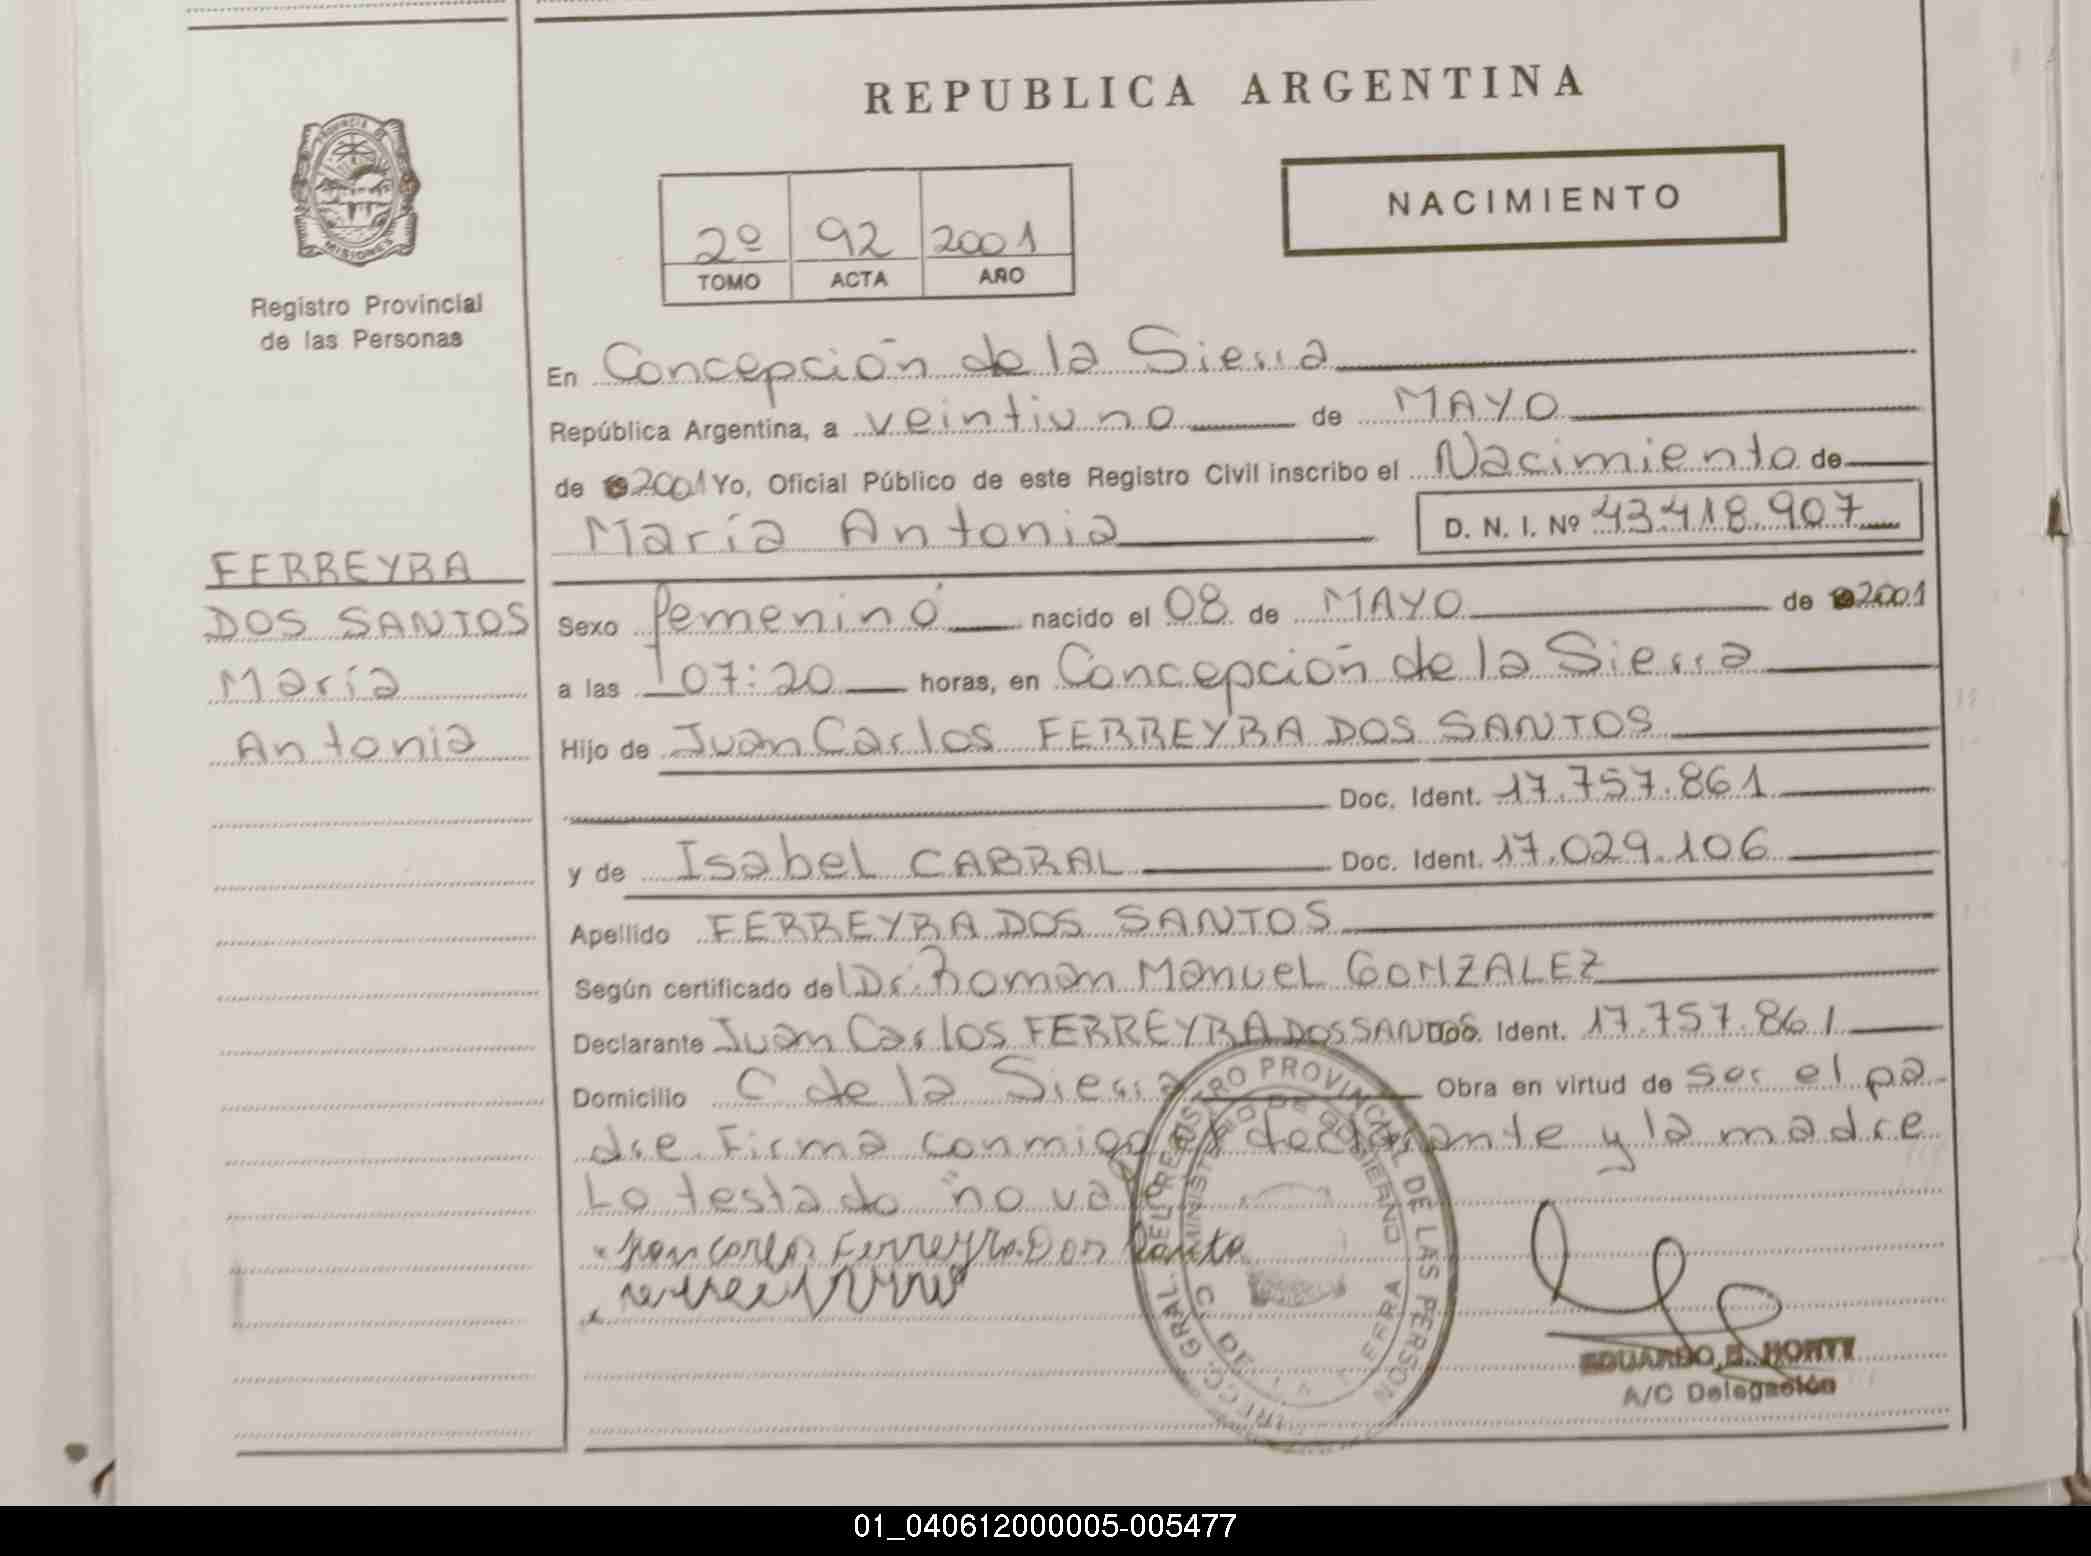 REPUBLICA ARGENTINA
PROVINCIA DE
MISIONES
Registro Provincial
de las Personas
NACIMIENTO
2º 92 2001
TOMO ACTA AÑO
En Concepción de la Sierra
República Argentina, a veintiuno de MAYO
de 2001 Yo, Oficial Público de este Registro Civil inscribo el Nacimiento de
María Antonia D. N. I. Nº 43.418.907
FERREYRA
DOS SANTOS
María
Antonia
Sexo femenino nacido el 08 de MAYO de 2001
a las 07:20 horas, en Concepción de la Sierra
Hijo de Juan Carlos FERREYRA DOS SANTOS
Doc. Ident. 17.757.861
y de Isabel CABRAL Doc. Ident. 17.029.106
Apellido FERREYRA DOS SANTOS
Según certificado de Dr. Roman Manuel GONZALEZ
Declarante Juan Carlos FERREYRA DOS SANTOS Doc. Ident. 17.757.861
Domicilio C de la Sierra Obra en virtud de ser el pa
dre. Firma conmigo el declarante y la madre
Lo testado "no vale
Juan Carlos Ferreyra Dos Santo
GRAL. DEL REGISTRO PROVINCIAL DE LAS PERSON
MINISTERIO DE GOBIERNO
C. DE LA SIERRA
EDUARDO E. HORTT
A/C Delegación
01_040612000005-005477